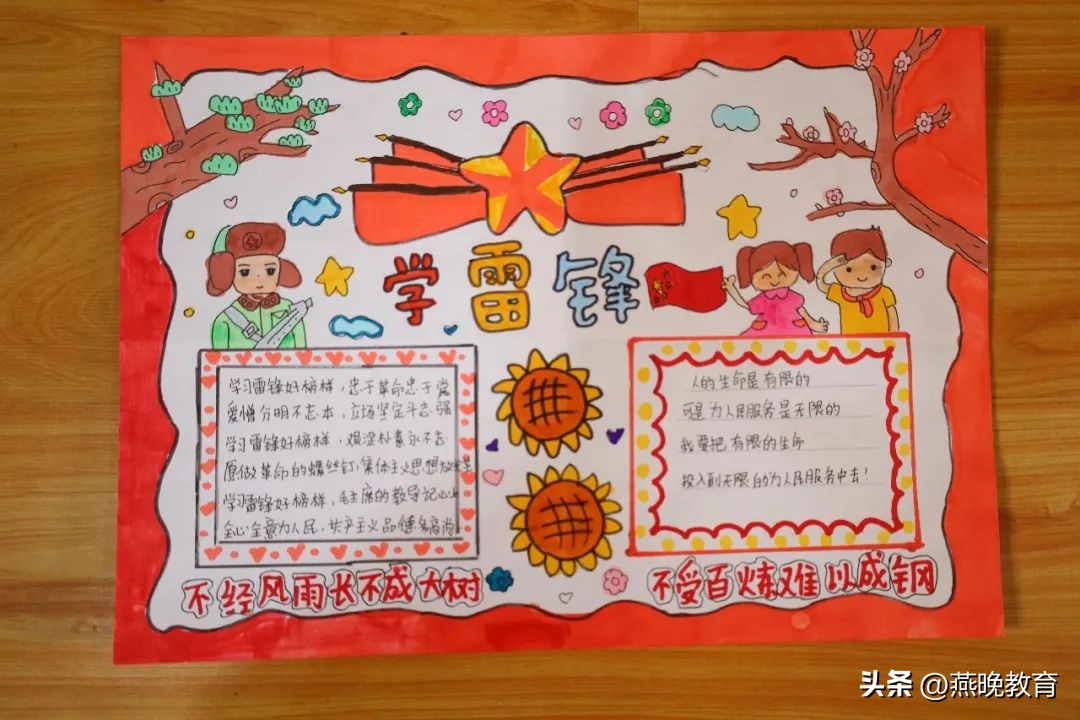 学雷锋
学习雷锋好榜样，忠于革命忠于党
爱憎分明不忘本，立场坚定斗志强
学习雷锋好榜样，艰涩朴素永不忘
愿做革命的螺丝钉，集体主义思想放光芒
学习雷锋好榜样，毛主席的教导记心上
全心全意为人民，共产主义品德多高尚
人的生命是有限的
可是为人民服务是无限的
我要把有限的生命
投入到无限的为人民服务中去！
不经风雨长不成大树
不受百炼难以成钢
头条 @燕晚教育